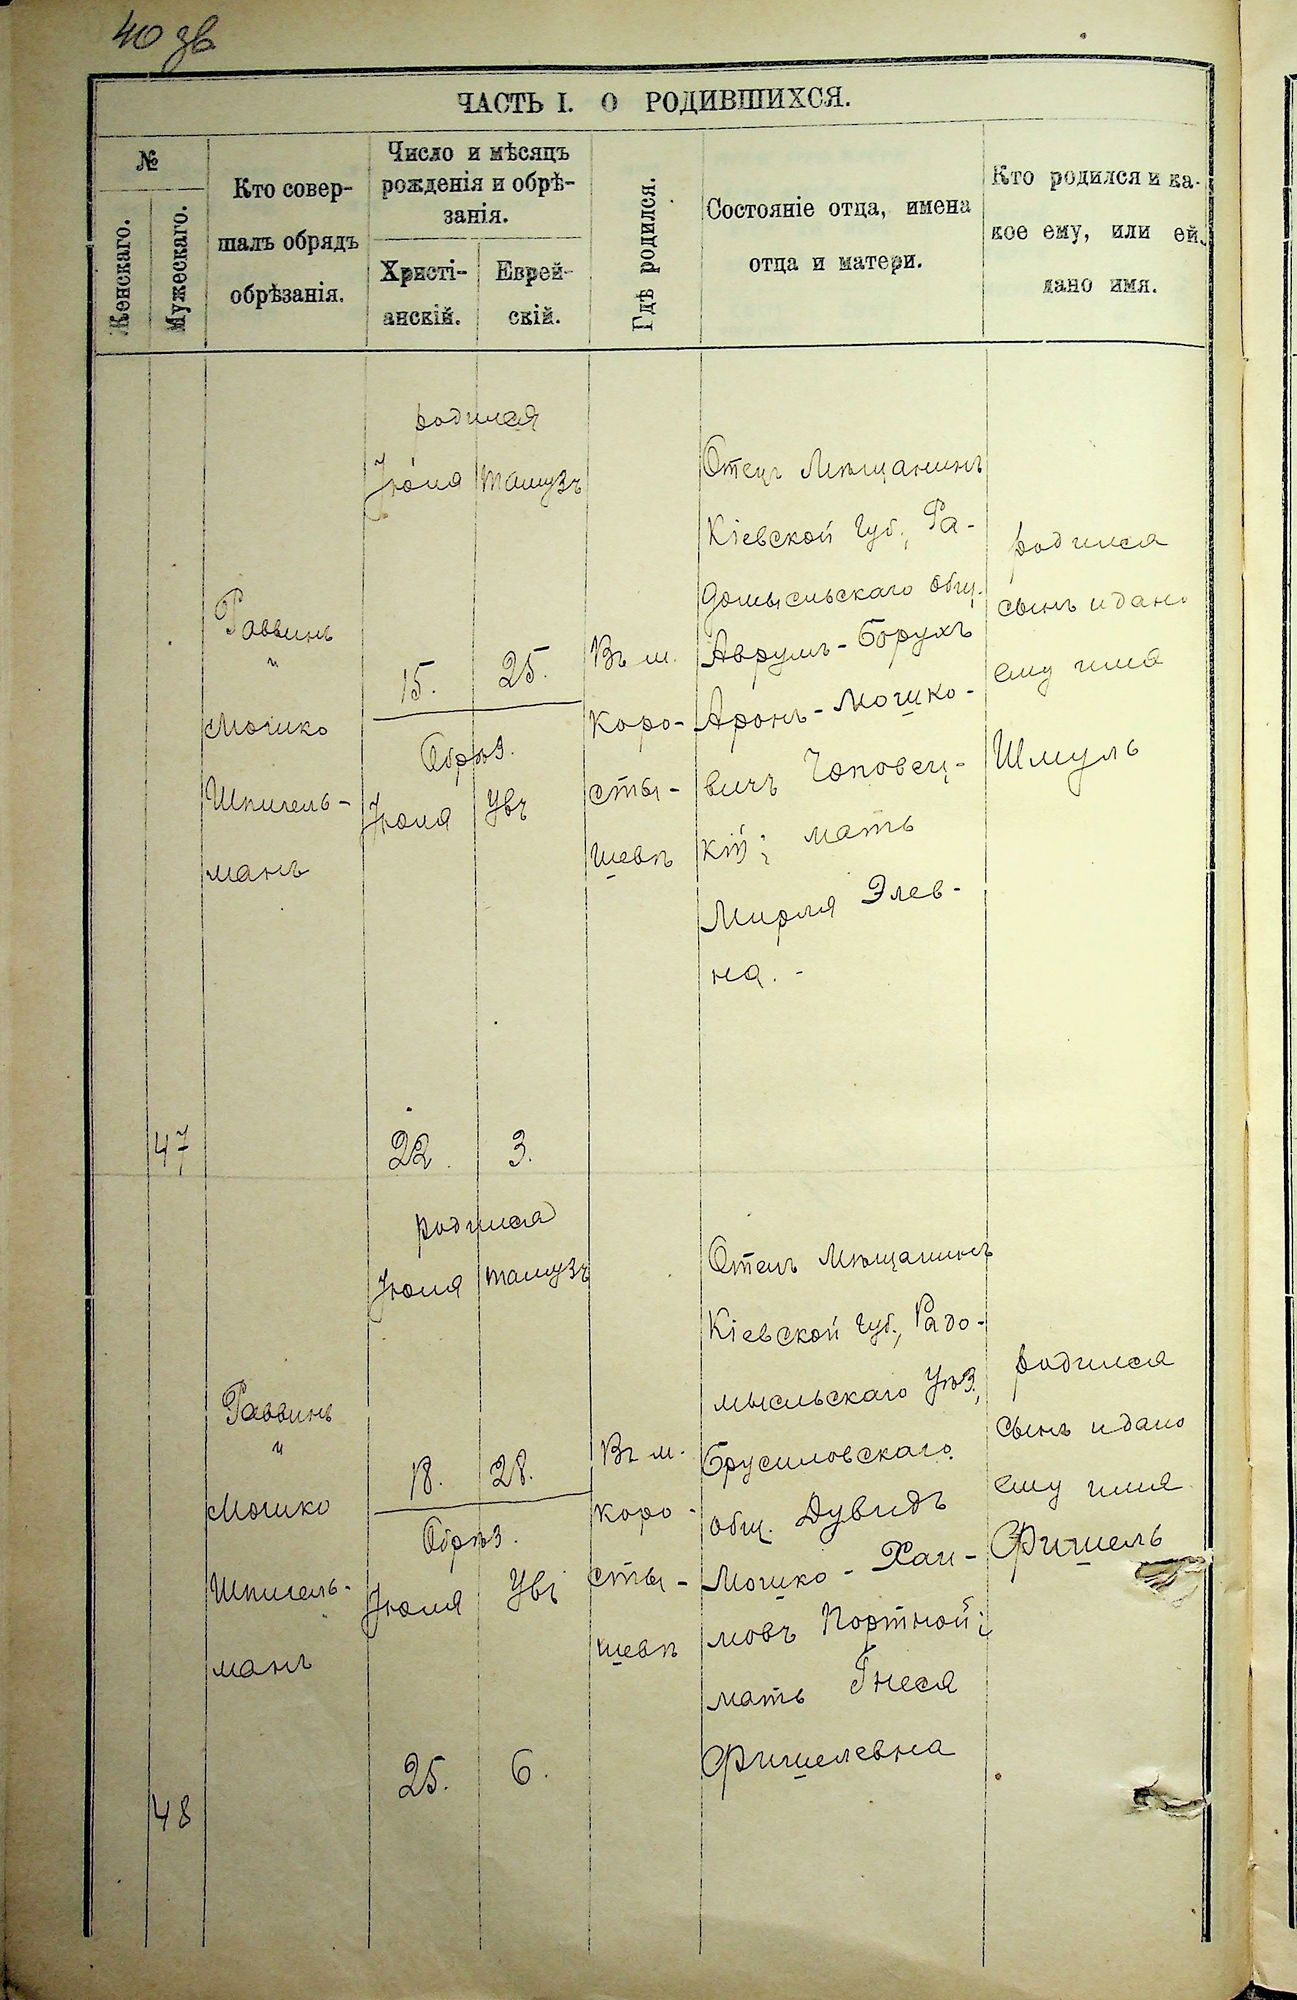 40 зв
ЧАСТЬ I. О РОДИВШИХСЯ.
№
Женскаго.
Мужескаго.
Кто совер-
шалъ обрядъ
обрѣзанія.
Число и мѣсяцъ
рожденія и обрѣ-
занія.
Христі-
анскій.
Еврей-
скій.
Гдѣ родился.
Состояніе отца, имена
отца и матери.
Кто родился и ка-
кое ему, или ей,
дано имя.
47
Раввинъ
и
Мошко
Шпигель-
манъ
родился
Іюля
Тамузъ
15.
25.
Обрѣз.
Іюля
Увъ
22.
3.
Въ м.
Коро-
сты-
шевѣ
Отецъ Мѣщанинъ
Кіевской Губ., Ра-
домысльскаго общ.
Аврумъ-Борухъ
Аронъ-Мошко-
вичъ Чоповец-
кій; мать
Мирля Элев-
на. -
родился
сынъ и дано
ему имя
Шмуль
48
Раввинъ
и
Мошко
Шпигель-
манъ
родился
Іюля
Тамузъ
18.
28.
Обрѣз.
Іюля
Увъ
25.
6.
Въ м.
Коро-
сты-
шевѣ
Отецъ Мѣщанинъ
Кіевской Губ., Радо-
мысльскаго Уѣз.,
Брусиловскаго
общ. Дувидъ
Мошко-Хаи-
мовъ Портной;
мать Гнеся
Фишелевна
родился
сынъ и дано
ему имя
Фишель